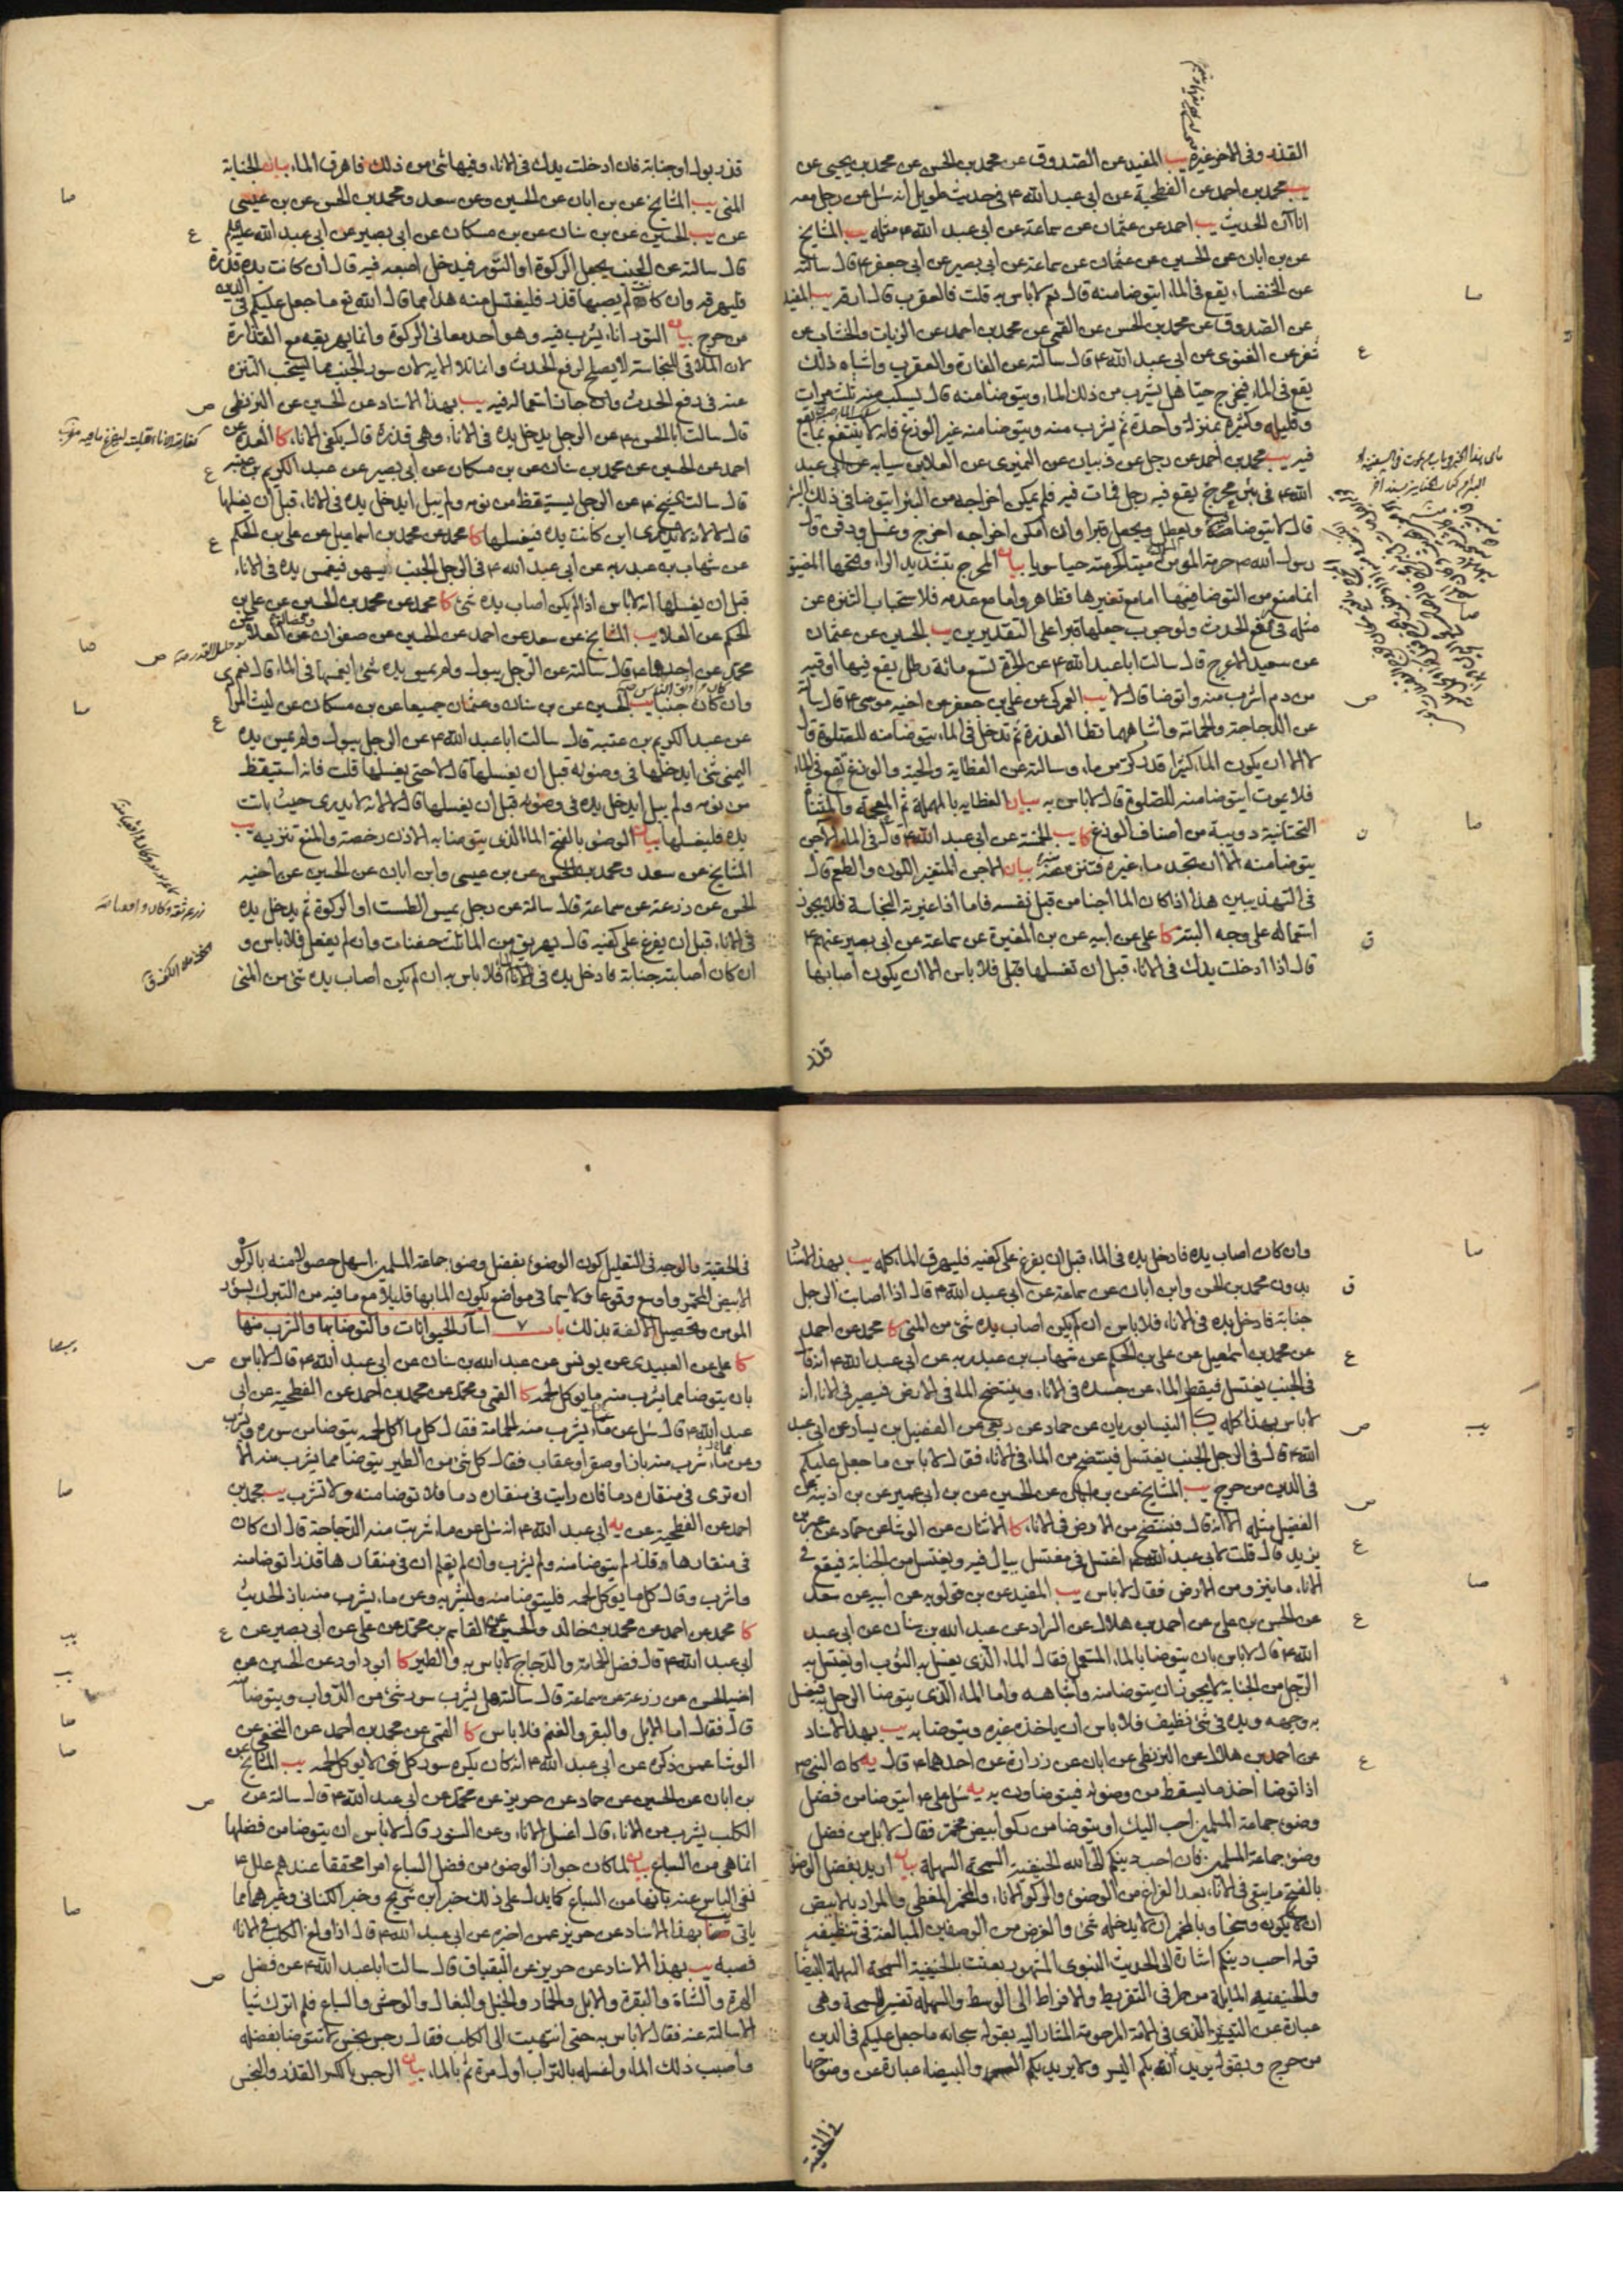 القذر وفى الاخر غيره يب المفيد عن الصدوق عن محمد بن الحسن عن محمد بن يحيى عن
يب محمد بن احمد عن الفطحية عن ابى عبد الله ع فى حديث طويل انه سئل عن رجل معه
اناآن الحديث يب احمد عن عثمان عن سماعة عن ابى عبد الله ع مثله يب المشايخ
عن بن ابان عن الحسين عن عثمان عن سماعة عن ابى بصير عن ابى جعفر ع قال سالته
عن الخنفساء يقع فى الماء ايتوضا منه قال نعم لا باس به قلت فالعقرب قال ارقه يب المفيد
عن الصدوق عن محمد بن الحسن عن القمى عن محمد بن احمد عن الزيات والخشاب عن
شعر عن الغنوى عن ابى عبد الله ع قال سالته عن الفارة والعقرب واشباه ذلك
يقع فى الماء فيخرج حيا هل يشرب من ذلك الماء ويتوضا منه قال يسكب منه ثلث مرات
وقليله وكثيره بمنزلة واحدة ثم يشرب منه ويتوضا منه غير الوزغ فانه لا ينتفع بما يقع
فيه يب محمد بن احمد عن رجل عن ذبيان عن النميرى عن العلا بن سيابه عن ابى عبد
الله ع فى بئر محرج يقع فيه رجل فمات فيه فلم يمكن اخراجه من البئر ايتوضا فى ذلك البئر
قال لا يتوضا فيه ويعطل ويجعل قبرا وان امكن اخراجه اخرج وغسل ودفن قال
رسول الله ص حرمة المومن ميتا كحرمته حيا سويا بيان المحرج بتشديد الراء وفتحها المضيق
انما منع من التوضا فيها اما مع تغيرها فظاهر واما مع عدمه فلاستحباب التنزه عن
مثله فى رفع الحدث ولوجوب جعلها قبرا على التقديرين يب الحسين عن عثمان
عن سعيد الاعرج قال سالت ابا عبد الله ع عن الجرة تسع مائة رطل يقع فيها اوقية
من دم اشرب منه واتوضا قال لا يب العمركى عن على بن جعفر عن اخيه موسى ع قال سالته
عن الدجاجة والحمامة واشباههما تطا العذرة ثم تدخل فى الماء يتوضا منه للصلوة قال
لا الا ان يكون الماء كثيرا قدر كر من ماء وسالته عن العظاية والحية والوزغ تقع فى الماء
فلا يموت ايتوضا منه للصلوة قال لا باس به بيان العظاية بالمهملة ثم المعجمة والمثناة
التحتانية دويبة من اصناف الوزغ كا يب الخمسة عن ابى عبد الله ع قال فى الماء الآجن
يتوضا منه الا ان تجد ماء غيره فتنزه منه بيان الآجن المتغير اللون والطعم قال
فى التهذيبين هذا اذا كان الماء آجنا من قبل نفسه فاما اذا غيرته النجاسة فلا يجوز
استعماله على وجه البتة كا على عن ابيه عن بن المغيرة عن سماعة عن ابى بصير عنهم ع
قال اذا ادخلت يدك فى الاناء قبل ان تغسلها قبل فلا باس الا ان يكون اصابها
قذر
قذر بول او جنابة فان ادخلت يدك فى الاناء وفيها شئ من ذلك فاهرق الماء بيان الجنابة
المنى يب المشايخ عن بن ابان عن الحسين وعن سعد ومحمد بن الحسن عن بن عيسى
عن يب الحسين عن بن سنان عن بن مسكان عن ابى بصير عن ابى عبد الله عليه
قال سالته عن الجنب يجعل الركوة او التور فيدخل اصبعه فيه قال ان كانت يده قذرة
فليهرقه وان كان لم يصبها قذر فليغتسل منه هذا مما قال الله تع ما جعل عليكم فى الدين
من حرج بيان التور اناء يشرب فيه وهو احد معانى الركوة وانما يهريقه مع القذارة
لان الملاقى للنجاسة لا يصلح لرفع الحدث وانما تلا الاية لان سور الجنب مما يستحب التنزه
عنه فى رفع الحدث وان جاز استعماله فيه يب بهذا الاسناد عن الحسين عن البزنطى
قال سالت ابا الحسن ع عن الرجل يدخل يده فى الاناء وهى قذرة قال يكفى الاناء كا العدة عن
احمد عن الحسين عن محمد بن سنان عن بن مسكان عن ابى بصير عن عبد الكريم بن عتبة
قال سالت الشيخ ع عن الرجل يستيقظ من نومه ولم يبل ايدخل يده فى الاناء قبل ان يغسلها
قال لا لانه لا يدرى اين كانت يده فيغسلها كا محمد عن محمد بن اسماعيل عن على بن الحكم
عن شهاب بن عبد ربه عن ابى عبد الله ع فى الرجل الجنب يسهو فيغمس يده فى الاناء
قبل ان يغسلها انه لا باس اذا لم يكن اصاب يده شئ كا محمد عن محمد بن الحسين عن على بن
الحكم عن العلا يب المشايخ عن سعد عن احمد عن الحسين عن صفوان عن العلا عن
محمد عن احدهما ع قال سالته عن الرجل يبول ولم يمس يده شئ ايغمسها فى الماء قال نعم
وان كان جنبا يب الحسين عن بن سنان وعثمان جميعا عن بن مسكان عن ليث المرادى
عن عبد الكريم بن عتبة قال سالت ابا عبد الله ع عن الرجل يبول ولم يمس يده
اليمنى شئ ايدخلها فى وضوئه قبل ان يغسلها قال لا حتى يغسلها قلت فانه استيقظ
من نومه ولم يبل ايدخل يده فى وضوئه قبل ان يغسلها قال لا لانه لا يدرى حيث باتت
يده فليغسلها بيان الوضوء بالفتح الماء الذى يتوضا به الاذن رخصة والمنع تنزيه يب
المشايخ عن سعد ومحمد بن الحسن عن بن عيسى وابن ابان عن الحسين عن اخيه
الحسن عن زرعة عن سماعة قال سالته عن رجل يمس الطست او الركوة ثم يدخل يده
فى الاناء قبل ان يفرغ على كفيه قال يهريق من الماء ثلث حفنات وان لم يفعل فلا باس و
ان كان اصابته جنابة فادخل يده فى الاناء فلا باس به ان لم يكن اصاب يده شئ من المنى
وان كان اصاب يده فادخل يده فى الماء قبل ان يفرغ على كفيه فليهرق الماء كله يب بهذا الاسناد
بدون محمد بن الحسن وابن ابان عن سماعة عن ابى عبد الله ع قال اذا اصابت الرجل
جنابة فادخل يده فى الاناء فلا باس ان لم يكن اصاب يده شئ من المنى كا محمد عن احمد
عن محمد بن اسمعيل عن على بن الحكم عن شهاب بن عبد ربه عن ابى عبد الله ع انه قال
فى الجنب يغتسل فيقطر الماء عن جسده فى الاناء وينتضح الماء فى الارض فيصير فى الاناء انه
لا باس بهذا كله كا النيسابوريان عن حماد عن ربعى عن الفضيل بن يسار عن ابى عبد
الله ع قال فى الرجل الجنب يغتسل فينتضح من الماء فى الاناء فقال لا باس ما جعل عليكم
فى الدين من حرج يب المشايخ عن بن ابان عن الحسين عن بن ابى عمير عن بن اذينة عن
الفضيل مثله الا انه قال فينتضح من الارض فى الاناء كا الاثنان عن الوشا عن حماد عن عمر بن
يزيد قال قلت لابى عبد الله ع اغتسل فى مغتسل يبال فيه ويغتسل من الجنابة فيقع فى
الاناء ماء ينزو من الارض فقال لا باس يب المفيد عن بن قولويه عن ابيه عن سعد
عن الحسن بن على عن احمد بن هلال عن السراد عن عبد الله بن سنان عن ابى عبد
الله ع قال لا باس بان يتوضا بالماء المستعمل فقال الماء الذى يغسل به الثوب او يغتسل به
الرجل من الجنابة لا يجوز ان يتوضا منه واشباهه واما الماء الذى يتوضا الرجل به فيغسل
به وجهه ويده فى شئ نظيف فلا باس ان ياخذه غيره ويتوضا به يب بهذا الاسناد
عن احمد بن هلال عن البزنطى عن ابان عن زرارة عن احدهما ع قال يه كان النبى ص
اذا توضا اخذ ما يسقط من وضوئه فيتوضاون به يه سئل على ع ايتوضا من فضل
وضوء جماعة المسلمين احب اليك او يتوضا من ركو ابيض مخمر فقال لا بل من فضل
وضوء جماعة المسلمين فان احب دينكم الى الله الحنيفية السمحة السهلة بيان اريد بفضل الوضوء
بالفتح ما يبقى فى الاناء بعد الفراغ من الوضوء والركو الاناء والمخمر المغطى والمراد بالابيض
ان لا يكون وسخا وبالمخمر ان لا يدخله شئ والغرض من الوصفين المبالغة فى تنظيفه
قوله احب دينكم اشارة الى الحديث النبوى المشهور بعثت بالحنيفية السمحة السهلة البيضاء
والحنيفية المايلة من طرفى التفريط والافراط الى الوسط والسهلة تفسير السمحة وهى
عبارة عن التيسير الذى فى الامة المرحومة المشار اليه بقوله سبحانه ما جعل عليكم فى الدين
من حرج وبقوله يريد الله بكم اليسر ولا يريد بكم العسر والبيضاء عبارة عن وضوحها
فى الحقية
فى الحقية والوجه فى التعليل كون الوضوء بفضل وضوء جماعة المسلمين اسهل حصولا منه بالركو
الابيض المخمر واوسع وقوعا ولا سيما فى مواضع يكون الماء بها قليلا مع ما فيه من التبرك بسؤر
المومن وتحصيل الالفة بذلك باب ٧ اسآر الحيوانات والتوضا بها والشرب منها
كا على عن العبيدى عن يونس عن عبد الله بن سنان عن ابى عبد الله ع قال لا باس
بان يتوضا مما يشرب منه ما يوكل لحمه كا القمى ومحمد عن محمد بن احمد عن الفطحية عن ابى
عبد الله ع قال سئل عن ماء يشرب منه الحمامة فقال كل ما اكل لحمه يتوضا من سوره ويشرب
وعن ماء شرب منه باز او صقر او عقاب فقال كل شئ من الطير يتوضا مما يشرب منه الا
ان ترى فى منقاره دما فان رايت فى منقاره دما فلا توضا منه ولا تشرب يب محمد بن
احمد عن الفطحية عن يه ابى عبد الله ع انه سئل عن ماء شربت منه الدجاجة قال ان كان
فى منقارها قذر لم يتوضا منه ولم يشرب وان لم يعلم ان فى منقارها قذرا توضا منه
واشرب وقال كل ما يوكل لحمه فليتوضا منه وليشربه وعن ماء يشرب منه باز الحديث
كا محمد عن احمد عن محمد بن خالد والحسين عن القاسم بن محمد عن على عن ابى بصير عن
ابى عبد الله ع قال فضل الحمامة والدجاج لا باس به والطير كا ابو داود عن الحسين عن
اخيه الحسن عن زرعة عن سماعة قال سالته هل يشرب سور شئ من الدواب ويتوضا منه
قال فقال اما الابل والبقر والغنم فلا باس كا القمى عن محمد بن احمد عن النخعى عن
الوشا عمن ذكره عن ابى عبد الله ع انه كان يكره سور كل شئ لا يوكل لحمه يب المشايخ عن
بن ابان عن الحسين عن حماد عن حريز عن محمد عن ابى عبد الله ع قال سالته عن
الكلب يشرب من الاناء قال اغسل الاناء وعن السنور قال لا باس ان يتوضا من فضلها
انما هى من السباع بيان لما كان جواز الوضوء من فضل السباع امرا محققا عندهم علل ع
نفى الباس عنه بانها من السباع كما يدل على ذلك خبر ابن شريح وخبر الكنانى وغيرهما مما
ياتى يب بهذا الاسناد عن حريز عمن اخبره عن ابى عبد الله ع قال اذا ولغ الكلب فى الاناء
فصبه يب بهذا الاسناد عن حريز عن البقباق قال سالت ابا عبد الله ع عن فضل
الهرة والشاة والبقرة والابل والحمار والخيل والبغال والوحش والسباع فلم اترك شيئا
الا سالته عنه فقال لا باس به حتى انتهيت الى الكلب فقال رجس نجس لا تتوضا بفضله
واصبب ذلك الماء واغسله بالتراب اول مرة ثم بالماء بيان الرجس بالكسر القذر والنجس